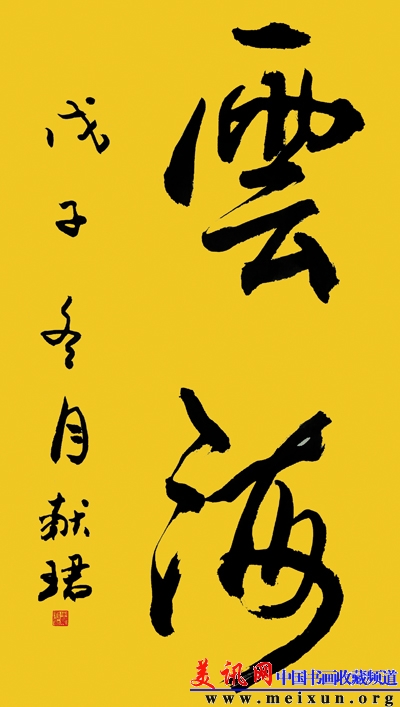 雲海
戊子冬月献珺
美讯网中国书画收藏频道
www.meixun.org